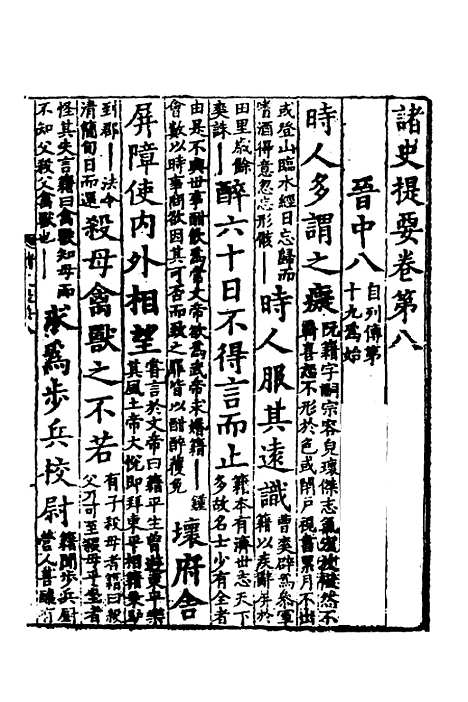 諸史提要卷第八
晉中八 自列傳第十九爲始
時人多謂之癡 阮籍字嗣宗容皃瓌傑志氣宏放傲然不羈喜怒不形於色或閉戶視書累月不出
或登山臨水經日忘歸而嗜酒得意忽忘形骸—— 時人服其遠識 曹爽辟爲參軍籍以疾辭屏於
田里歲餘爽誅—— 醉六十日不得言而止 籍本有濟世志天下多故名士少有全者
由是不與世事酣飲爲常文帝欲爲武帝求婚籍——鍾會數以時事問欲因其可否而致之罪皆以酣醉獲免 壞府舍
屏障使内外相望 嘗言於文帝曰籍平生曾遊東平樂其風土帝大悅即拜東平相籍乘驢
到郡——法令清簡旬日而還 殺母禽獸之不若 有子殺母者籍曰殺父乃可至殺母乎坐者
怪其失言籍曰禽獸知母而不知父殺父禽獸也—— 求爲步兵校尉 籍聞步兵廚營人善釀有